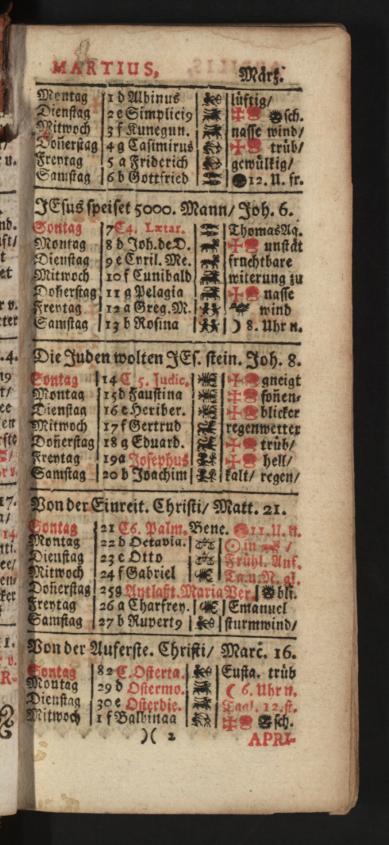 MARTIUS, Märtz.
Montag 1 d Albinus lüftig/
Dienstag 2 e Simplici9 ✠ sch.
Mitwoch 3 f Kunegun. nasse wind/
Doñerstag 4 g Casimirus ✠ trüb/
Freytag 5 a Friderich gewülkig/
Samstag 6 b Gottfried 12. U. fr.
JEsus speiset 5000. Mann/ Joh. 6.
Sontag 7 C 4. Lxtar. Thomas Aq.
Montag 8 d Joh. de D. ✠ unstät
Dienstag 9 e Cyril. Me. fruchtbare
Mitwoch 10 f Cunibald witerung zu
Doñerstag 11 g Pelagia ✠ nasse
Freytag 12 a Greg. M. wind
Samstag 13 b Rosina ☽ 8. Uhr n.
Die Juden wolten JEs. stein. Joh. 8.
Sontag 14 C 5. Judic. ✠ gneigt
Montag 15 d Faustina ✠ soñen-
Dienstag 16 e Heriber. ✠ blicker
Mitwoch 17 f Gertrud regenwetter
Doñerstag 18 g Eduard. ✠ trüb/
Freytag 19 a Josephus ✠ hell/
Samstag 20 b Joachim kalt/ regen/
Von der Einreit. Christi/ Matt. 21.
Sontag 21 C 6. Palm. Bene. 11. U. n.
Montag 22 d Octavia. ☉ in
Dienstag 23 e Otto Frühl. Anf.
Mitwoch 24 f Gabriel Ta. u. N. gl.
Doñerstag 25 g Antlaßt. Maria Ver. bli.
Freytag 26 a Charfrey. Emanuel
Samstag 27 b Rupert9 sturmwind/
Von der Auferste. Christi/ Marc. 16.
Sontag 28 C. Osterta. Eusta. trüb
Montag 29 d Ostermo. ☾ 6. Uhr n.
Dienstag 30 e Osterdie. Tagl. 12. st.
Mitwoch 1 f Balbinaa ✠ sch.
)( 2 APRI-